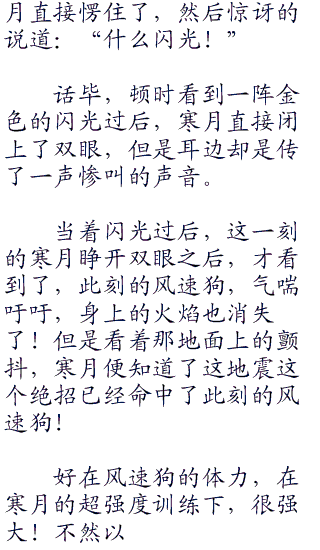 月直接愣住了，然后惊讶的
说道：“什么闪光！”
话毕，顿时看到一阵金
色的闪光过后，寒月直接闭
上了双眼，但是耳边却是传
了一声惨叫的声音。
当着闪光过后，这一刻
的寒月睁开双眼之后，才看
到了，此刻的风速狗，气喘
吁吁，身上的火焰也消失
了！但是看着那地面上的颤
抖，寒月便知道了这地震这
个绝招已经命中了此刻的风
速狗！
好在风速狗的体力，在
寒月的超强度训练下，很强
大！不然以